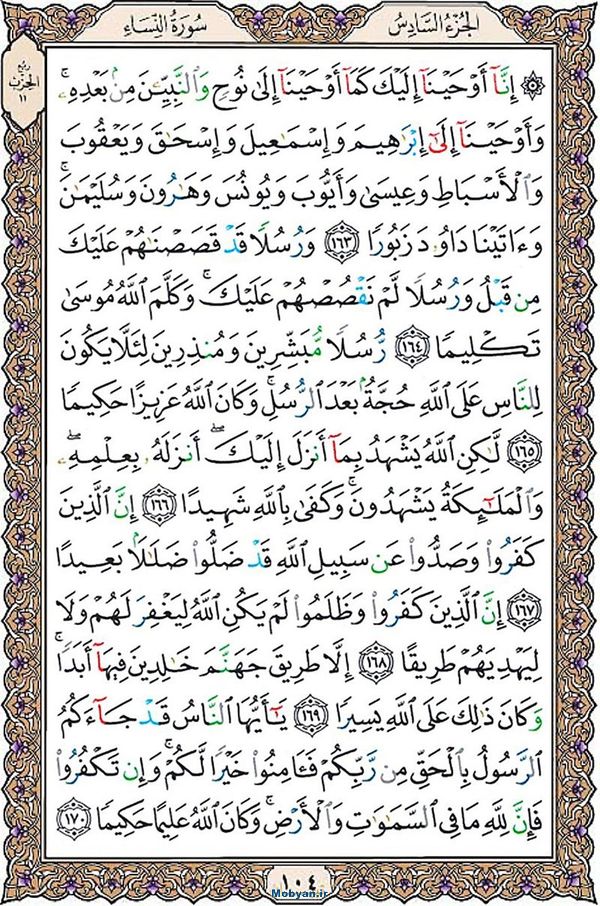 الجُزءُ السَّادِسُ
سُورَةُ النِّسَاءِ
ربع
الحزب
١١
۞ إِنَّآ أَوۡحَيۡنَآ إِلَيۡكَ كَمَآ أَوۡحَيۡنَآ إِلَىٰ نُوحٖ وَٱلنَّبِيِّـۧنَ مِنۢ بَعۡدِهِۦۚ
وَأَوۡحَيۡنَآ إِلَىٰٓ إِبۡرَٰهِيمَ وَإِسۡمَٰعِيلَ وَإِسۡحَٰقَ وَيَعۡقُوبَ
وَٱلۡأَسۡبَاطِ وَعِيسَىٰ وَأَيُّوبَ وَيُونُسَ وَهَٰرُونَ وَسُلَيۡمَٰنَۚ
وَءَاتَيۡنَا دَاوُۥدَ زَبُورٗا ١٦٣ وَرُسُلٗا قَدۡ قَصَصۡنَٰهُمۡ عَلَيۡكَ
مِن قَبۡلُ وَرُسُلٗا لَّمۡ نَقۡصُصۡهُمۡ عَلَيۡكَۚ وَكَلَّمَ ٱللَّهُ مُوسَىٰ
تَكۡلِيمٗا ١٦٤ رُّسُلٗا مُّبَشِّرِينَ وَمُنذِرِينَ لِئَلَّا يَكُونَ
لِلنَّاسِ عَلَى ٱللَّهِ حُجَّةُۢ بَعۡدَ ٱلرُّسُلِۚ وَكَانَ ٱللَّهُ عَزِيزًا حَكِيمٗا
١٦٥ لَّٰكِنِ ٱللَّهُ يَشۡهَدُ بِمَآ أَنزَلَ إِلَيۡكَۖ أَنزَلَهُۥ بِعِلۡمِهِۦۖ
وَٱلۡمَلَٰٓئِكَةُ يَشۡهَدُونَۚ وَكَفَىٰ بِٱللَّهِ شَهِيدًا ١٦٦ إِنَّ ٱلَّذِينَ
كَفَرُواْ وَصَدُّواْ عَن سَبِيلِ ٱللَّهِ قَدۡ ضَلُّواْ ضَلَٰلَۢا بَعِيدًا
١٦٧ إِنَّ ٱلَّذِينَ كَفَرُواْ وَظَلَمُواْ لَمۡ يَكُنِ ٱللَّهُ لِيَغۡفِرَ لَهُمۡ وَلَا
لِيَهۡدِيَهُمۡ طَرِيقًا ١٦٨ إِلَّا طَرِيقَ جَهَنَّمَ خَٰلِدِينَ فِيهَآ أَبَدٗاۚ
وَكَانَ ذَٰلِكَ عَلَى ٱللَّهِ يَسِيرٗا ١٦٩ يَٰٓأَيُّهَا ٱلنَّاسُ قَدۡ جَآءَكُمُ
ٱلرَّسُولُ بِٱلۡحَقِّ مِن رَّبِّكُمۡ فَـَٔامِنُواْ خَيۡرٗا لَّكُمۡۚ وَإِن تَكۡفُرُواْ
فَإِنَّ لِلَّهِ مَا فِي ٱلسَّمَٰوَٰتِ وَٱلۡأَرۡضِۚ وَكَانَ ٱللَّهُ عَلِيمًا حَكِيمٗا ١٧٠
١٠٤
Mobyan.ir